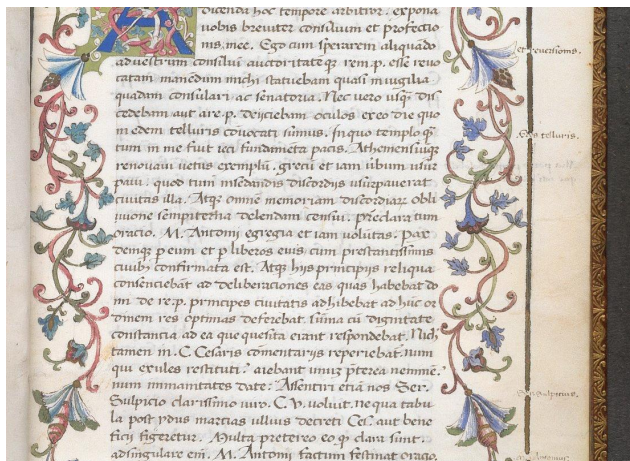 dicenda hoc tempore arbitror. expona
uobis breuiter consilium et profectio
nis mee. Ego cum sperarem aliquado
ad uestrum consiliu auctoritateq; rem.p. esse reuo
catam manedum michi statuebam quasi in uigilia
quadam consulari ac senatoria. Nec uero usq; dis
cedebam aut a re.p. deijciebam oculos ex eo die quo
in edem telluris couocati sumus. In quo templo q̃
tum in me fuit ieci fundameta pacis. Atheniensiuq;
renouaui uetus exemplu. grecu et iam uerbum usur
paui. quod tum in sedandis discordijs usurpauerat
ciuitas illa. Atq; omne memoriam discordiaꝝ obli
uione sempiterna delendam censui. preclara tum
oracio. M. Antonij egregia et iam volutas. pax
deniq; p eum et p liberos eius cum prestantissimis
ciuib; confirmata est. Atq; hijs principijs reliqua
consenciebat ad deliberaciones eas quas habebat do
mi de re.p. principes ciuitatis adhibebat ad huc or
dinem res optimas deferebat. suma cu dignitate
constancia ad ea que quesita erant respondebat. Nich
tamen in. C. Cesaris comentarijs reperiebat. num
qui exules restituti? aiebant unuz p̃terea neminẽ?
num immunitates date? Assentiri eciã nos Ser.
Sulpicio clarissimo uiro. C. V. uoluit. ne qua tabu
la post ydus marcias ullius decreti Ces. aut bene
ficij figeretur. Multa pretereo eo q̃ clara sunt.
ad singulare eñ. M. Antonij factum festinat oracio.
et reuersionis.
Edes telluris.
Ser. Sulpicius.
M. Antonius